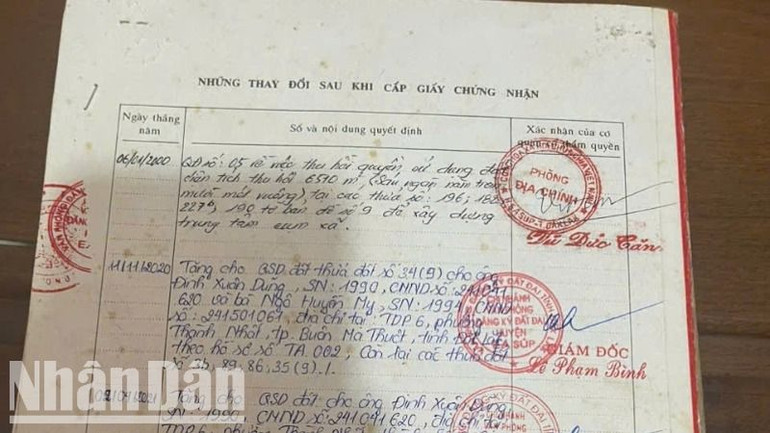 NHỮNG THAY ĐỔI SAU KHI CẤP GIẤY CHỨNG NHẬN
Ngày tháng năm
Số và nội dung quyết định
Xác nhận của cơ quan có thẩm quyền
06/01/2000
QĐ số: 05 về việc thu hồi quyền sử dụng đất
diện tích thu hồi 6570 m²,
tại các thửa số: 196;
227, 190 tờ bản đồ số 9 để xây dựng
trung tâm cụm xã.
PHÒNG
ĐỊA CHÍNH
Từ Đức Căn
11/11/2020
Tặng cho QSD đất thửa đất số 34(9) cho ông
Đinh Xuân Dũng, SN: 1990, CMND số: 241041
620 và bà Ngô Huyền My, SN: 1991, CMND
số: 241501067. Địa chỉ tại: TDP 6, phường
Thành Nhất, tp. Buôn Ma Thuột, tỉnh Đắk Lắk
theo hồ sơ số TA 002, Còn lại các thửa đất
số 89, 86, 35(9)./.
CHI NHÁNH
ĐĂNG KÝ ĐẤT ĐAI
HUYỆN
EA SÚP
GIÁM ĐỐC
Lê Phạm Bình
02/04/2021
QSD đất cho ông Đinh Xuân Dũng
SN: 1990, CMND số: 241041620, địa chỉ tại
TDP 6,
NhânDân